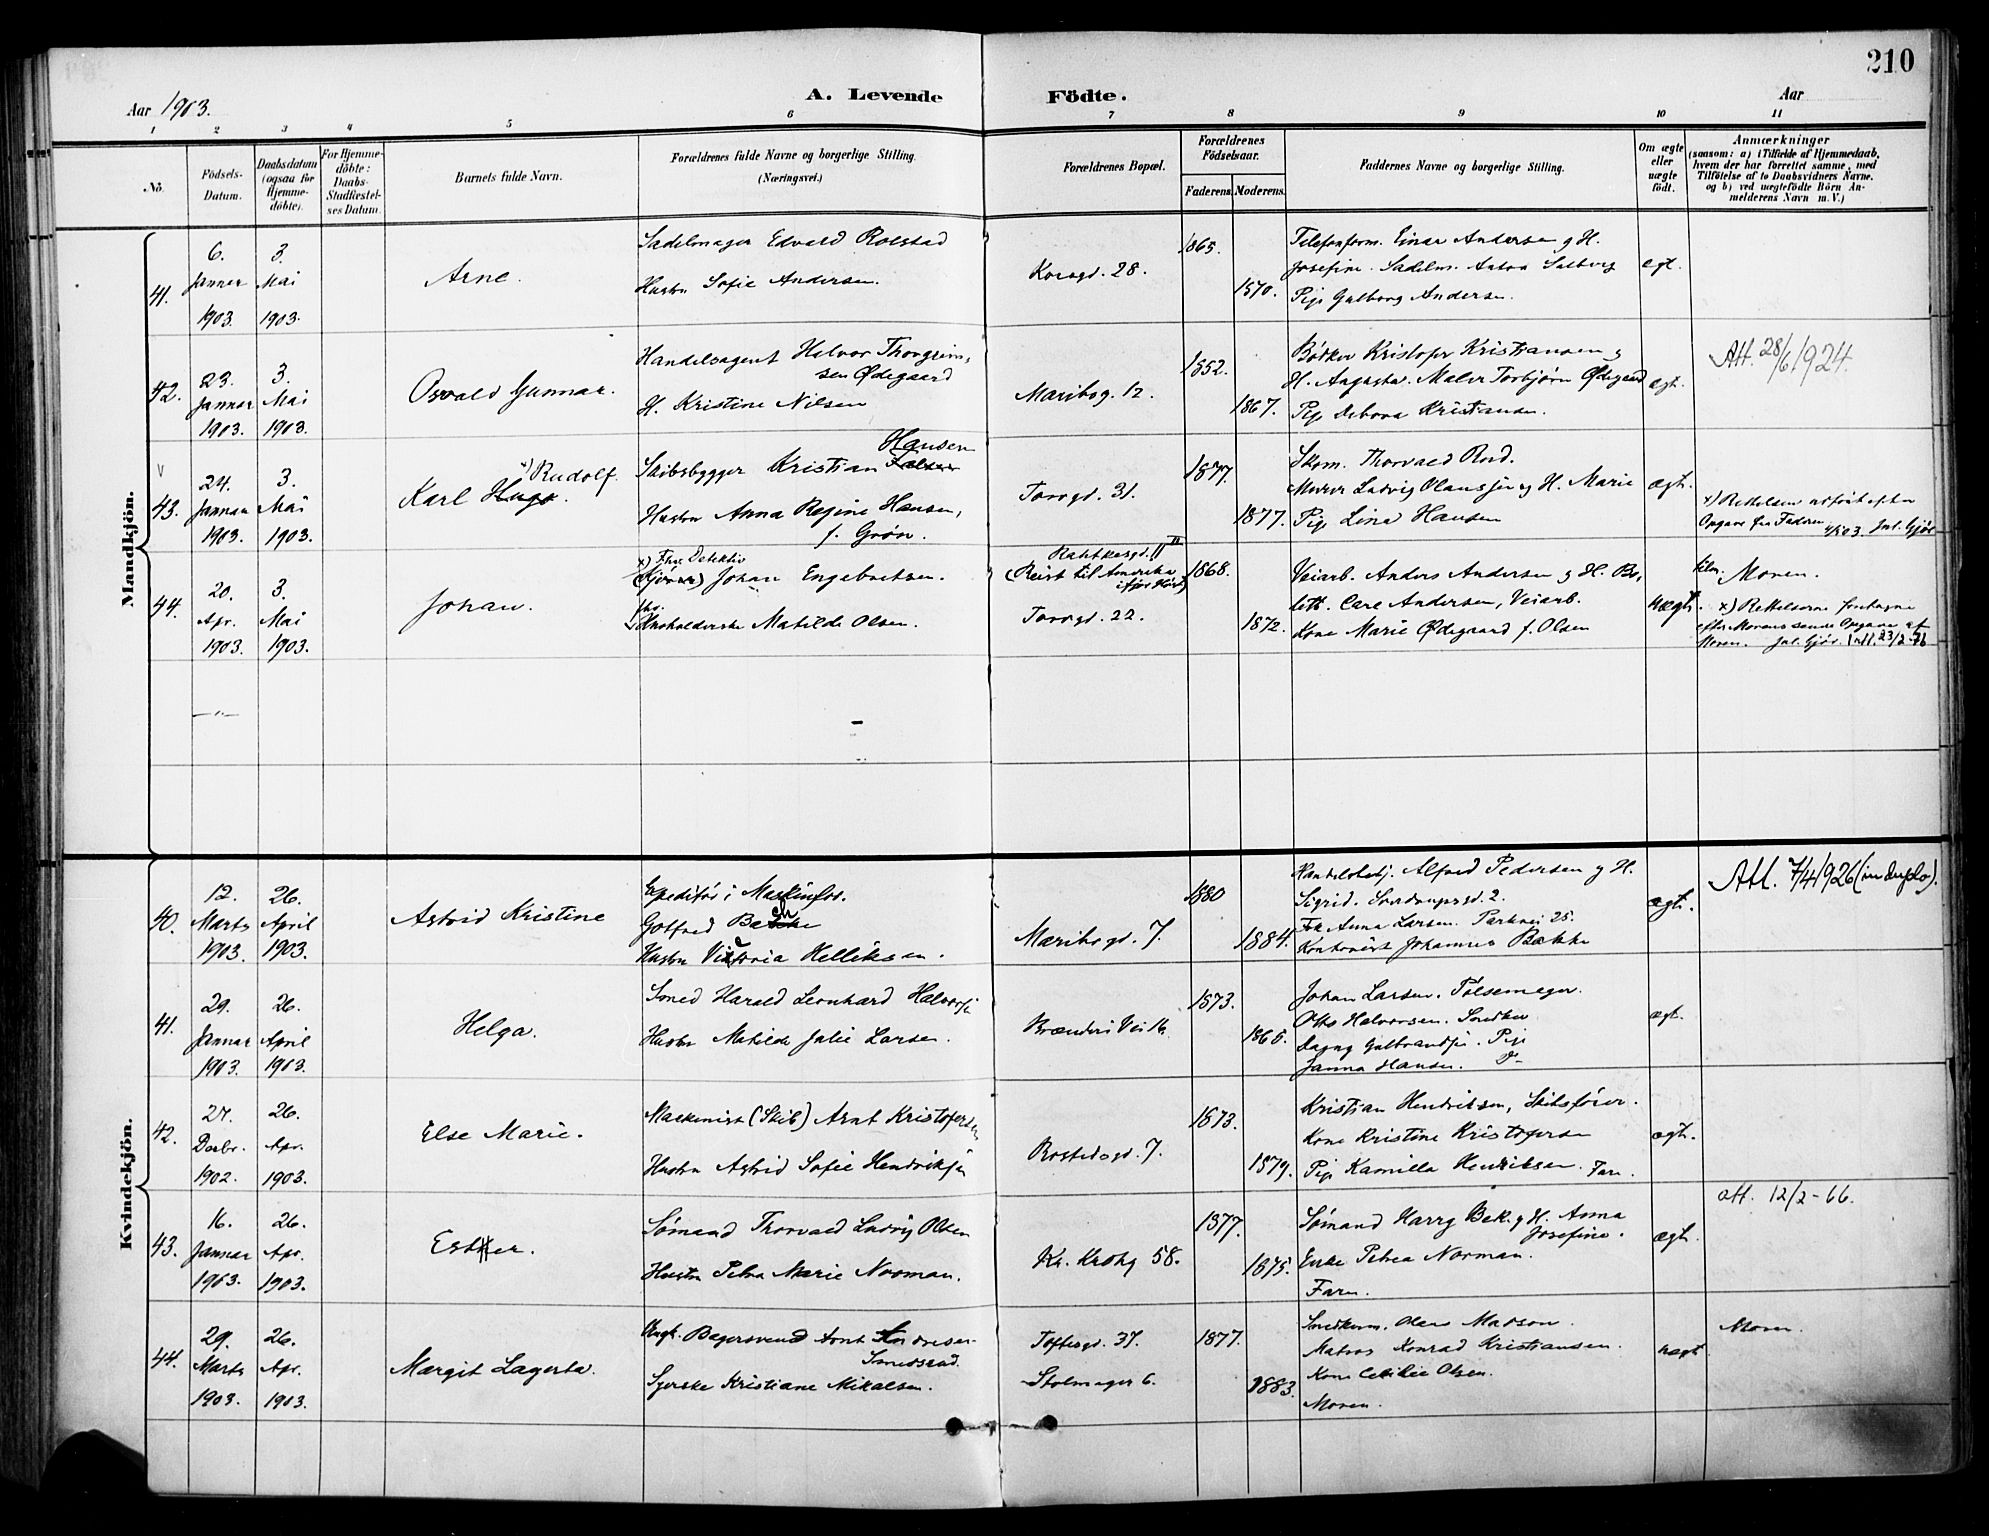 210
Aar 1903.
A. Levende Födte.
Aar
1 2 3 4 5 6 7 8 9 10 11
No.
Födsels-Datum.
Daabsdatum (ogsaa for Hjemme-döbte).
For Hjemme-döbte: Daabs-Stadfæstel-ses Datum.
Barnets fulde Navn.
Forældrenes fulde Navne og borgerlige Stilling.
(Næringsvei.)
Forældrenes Bopæl.
Forældrenes Födselsaar.
Faderens. Moderens.
Faddernes Navne og borgerlige Stilling.
Om ægte eller uægte födt.
Anmærkninger
(saasom: a) i Tilfælde af Hjemmedaab, hvem der har forrettet samme, med Tilföielse af to Daabsvidners Navne. og b) ved uægtefödte Börn An-melderens Navn m. V.)
Mandkjön.
41.
6. Januar 1903.
3. Mai 1903.
Arne.
Sadelmager Edvald Rolstad
Hustru Sofie Andersen.
Korsgd. 28.
1865.
1870.
Telefonform. Einar Andersen og H.
Josefine. Sadelm. Anton Solberg
Pige Gulborg Andersen.
ægt.
42.
23. Januar 1903.
3. Mai 1903.
Osvald Gunnar.
Handelsagent Halvor Thorgrim-
sen Ødegaard
H. Kristine Nilsen
Maribog. 12.
1852.
1867.
Bødker Kristofer Kristiansen og
H. Augusta. Maler Torbjørn Ødegaard
Pige Debora Kristiansen.
ægt.
Att. 28/6 1924.
43.
24. Januar 1903.
3. Mai 1903.
x) Rudolf.
Karl Hugo.
Hansen
Skibsbygger Kristian
Hustru Anna Regine Hansen,
f. Grøn.
Torvgd. 31.
1877.
1877.
Skom. Thorvald Rud.
Murer Ludvig Olaussen og H. Marie
Pige Lina Hansen
ægt.
x) Rettelsen utført efter
Opgave fra Faderen 4/5 03. Jul. Gjør
44.
20. Apr. 1903.
3. Mai 1903.
Johan.
x) Detektiv
Johan Engebretsen.
Husholderske Matilde Olsen.
Rathkesgd. 11
(Reist til Amerika
i fjor Høst)
Torvgd. 22.
1868.
1872.
Veiarb. Anders Andersen og H. Bo-
lett. Carl Andersen, Veiarb.
Kone Marie Ødegaard f. Olsen
uægt.
Moren.
x) Rettelserne foretagne
efter Morens sende Opgave af
Moren. Jul. Gjør.
Kvindekjön.
40.
12. Marts 1903.
26. April 1903.
Astrid Kristine
Expeditør i Maskinfor.
Gotfred Bache
Hustru Victoria Helliksen.
Maribogd. 7.
1880
1884.
Handelsbetj. Alfred Pedersen og H.
Sigrid. Sverdrupsgd. 2.
Frk Anna Larsen. Parkvei 25.
Kontorist Johannes Bakke
ægt.
Att. 7/4 1926 (in duplo).
41.
29. Januar 1903.
26. April 1903.
Helga.
Smed Harald Leonhard Halvorsen
Hustru Matilde Julie Larsen.
Brænneri Vei 16
1873.
1865.
Johan Larsen. Pølsemager.
Otto Halvorsen. Snedker
Dagny Gulbrandsen. Pige
Janna Hansen. D-
ægt.
42.
27. Decbr. 1902.
26. Apr. 1903.
Else Marie.
Maskinist (Skib) Arnt Kristofersen
Hustru Astrid Sofie Hendriksen
Rostedsgd. 7.
1873.
1879.
Kristian Hendriksen, Skibsfører.
Kone Kristine Kristofersen
Pige Kamilla Henriksen. Faren.
ægt.
43.
16. Januar 1903.
26. Apr. 1903.
Esther.
Sømand Thorvald Ludvig Olsen
Hustru Petra Marie Norman.
Kr. Krohg 58.
1877.
1875.
Sømand Harry Bek. og H. Anna
Josefine.
Enke Petrea Norman.
Faren.
ægt.
att. 12/2-66.
44.
29. Marts 1903.
26. Apr. 1903.
Margit Lagerta.
Ungk. Bagersvend Arnt Andresen
Smedsrud.
Syerske Kristiane Mikalsen.
Toftesgd. 37.
Stolmager 6.
1877.
1883.
Snedkerm. Olaus Madsen.
Matros Konrad Kristiansen.
Kone Cecilie Olsen.
Moren.
uægt
Moren.